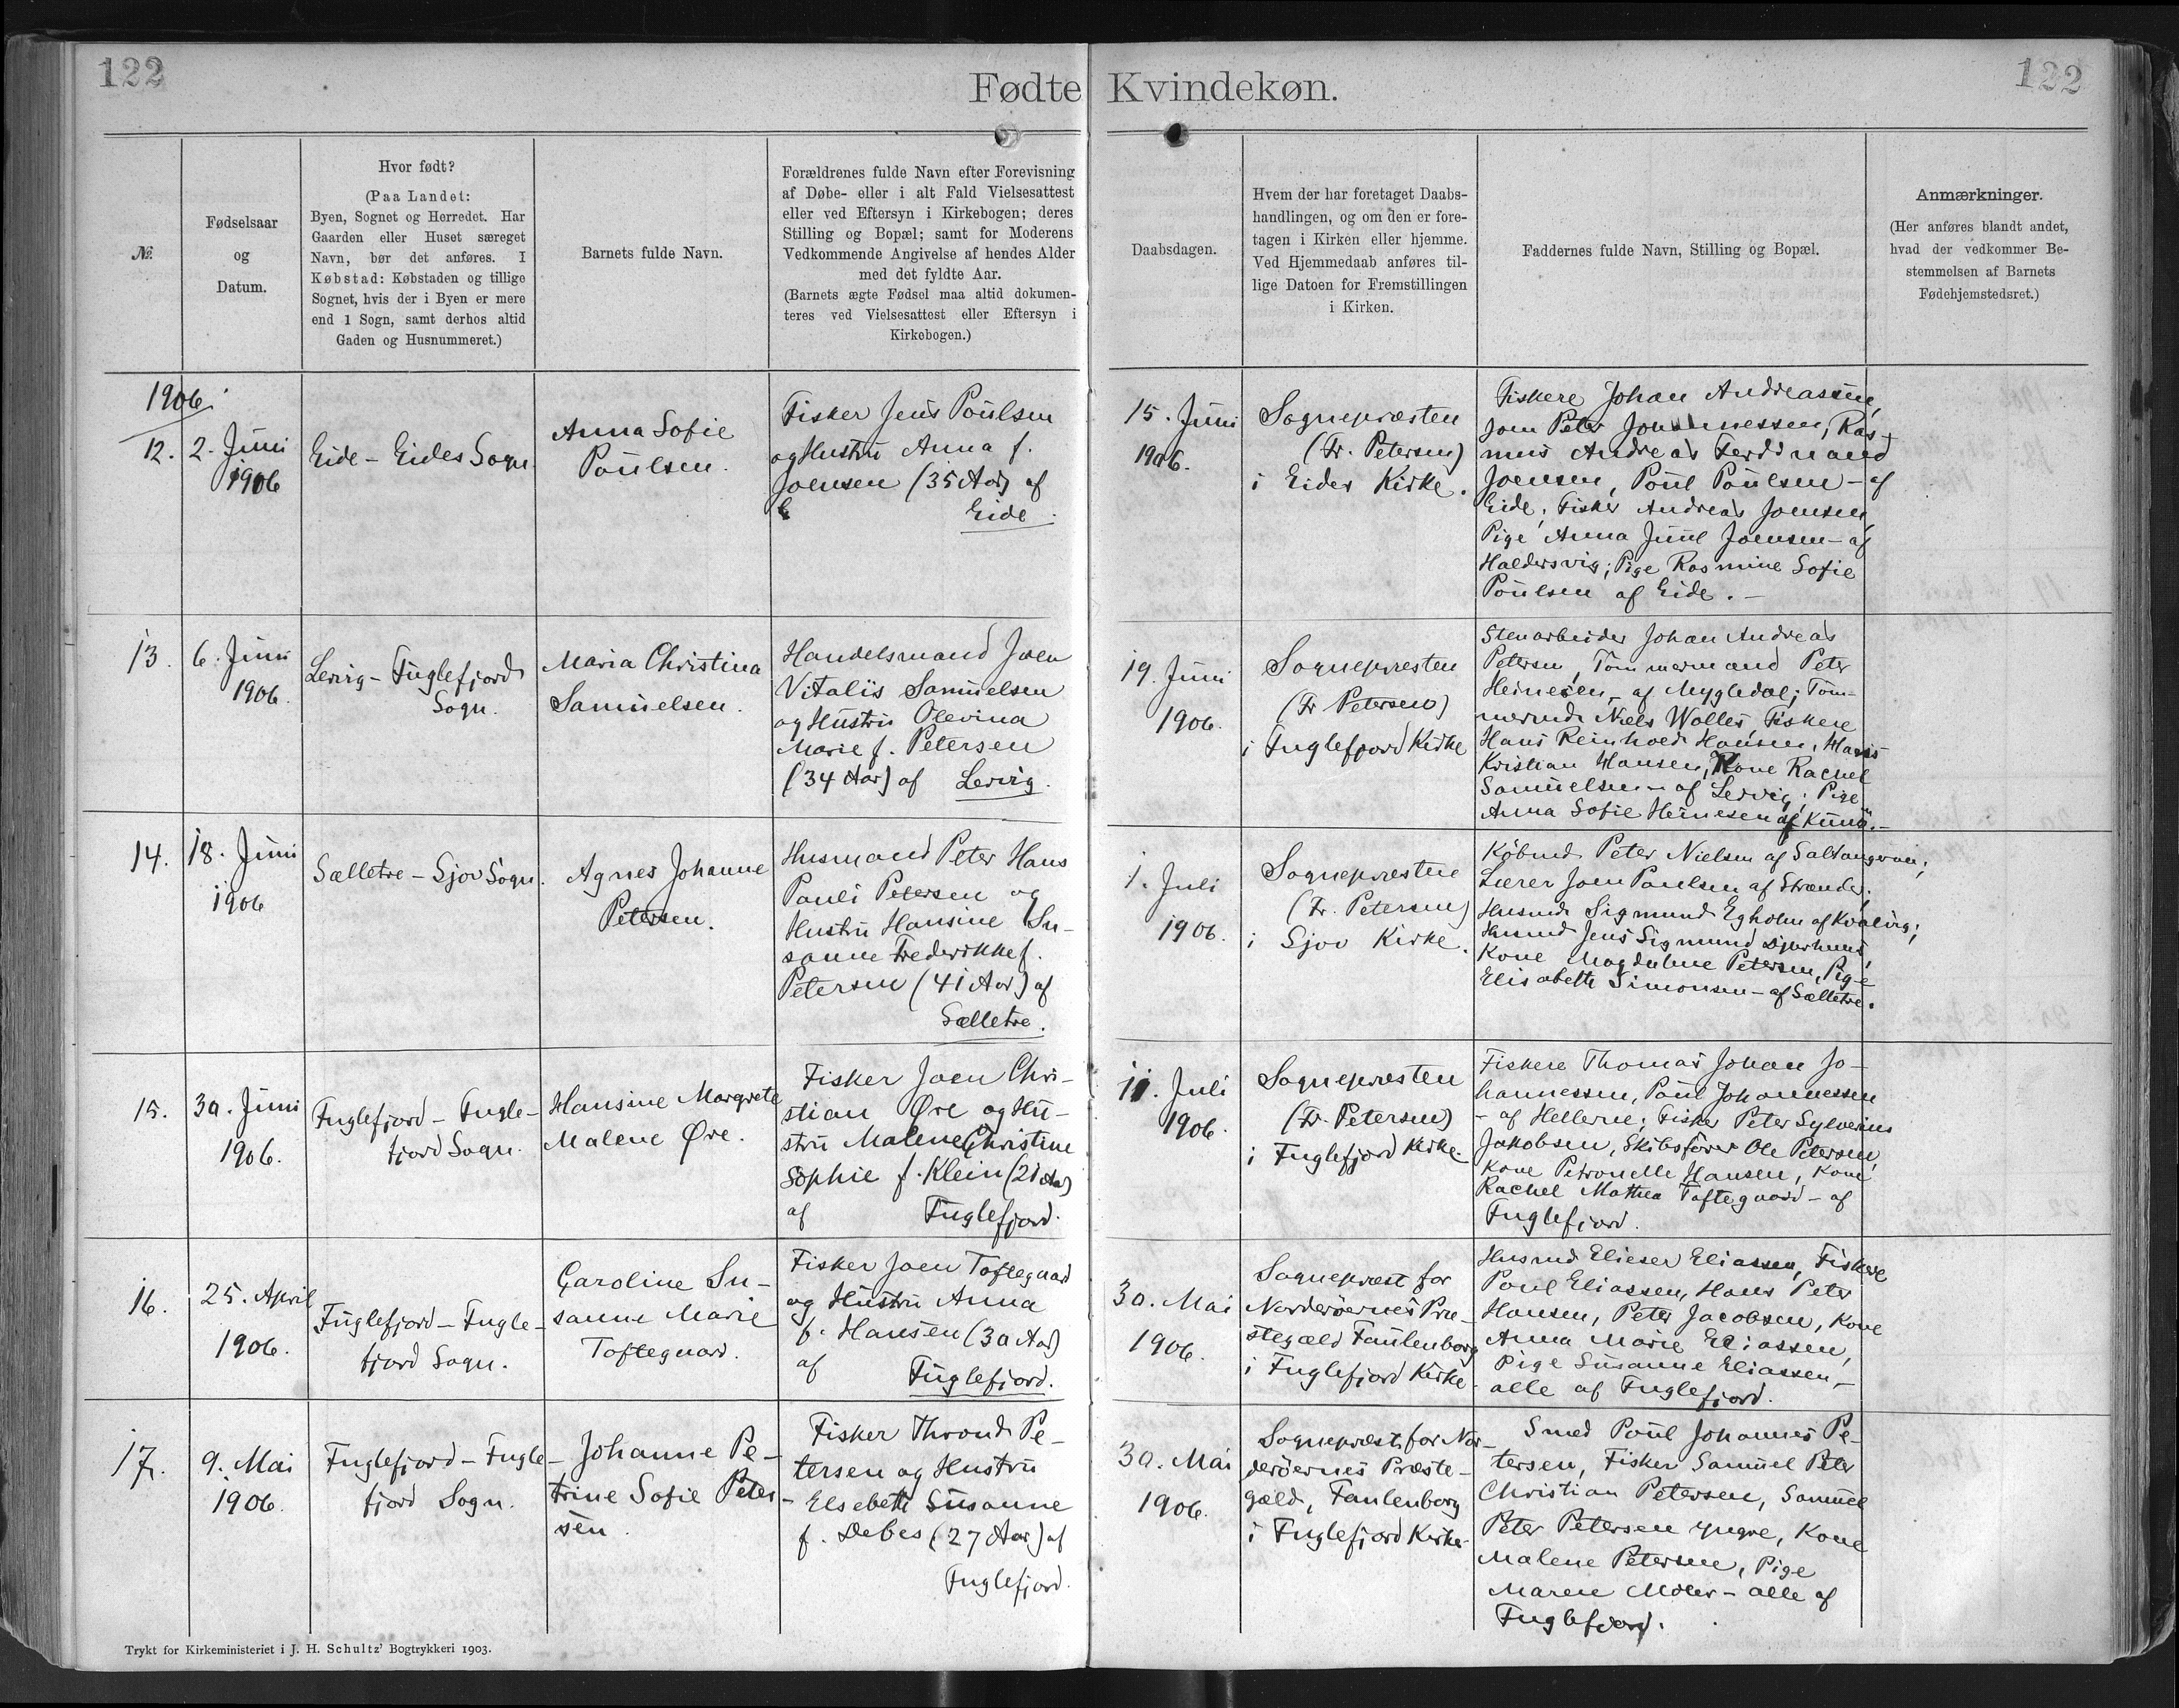 122
Fødte Kvindekøn.
122
№.
Fødselsaar
og
Datum.
Hvor født?
(Paa Landet:
Byen, Sognet og Herredet. Har
Gaarden eller Huset særeget
Navn, bør det anføres. I
Købstad: Købstaden og tillige
Sognet, hvis der i Byen er mere
end 1 Sogn, samt derhos altid
Gaden og Husnummeret.)
Barnets fulde Navn.
Forældrenes fulde Navn efter Forevisning
af Døbe- eller i alt Fald Vielsesattest
eller ved Eftersyn i Kirkebogen; deres
Stilling og Bopæl; samt for Moderens
Vedkommende Angivelse af hendes Alder
med det fyldte Aar.
(Barnets ægte Fødsel maa altid dokumen-
teres ved Vielsesattest eller Eftersyn i
Kirkebogen.)
Daabsdagen.
Hvem der har foretaget Daabs-
handlingen, og om den er fore-
tagen i Kirken eller hjemme.
Ved Hjemmedaab anføres til-
lige Datoen for Fremstillingen
i Kirken.
Faddernes fulde Navn, Stilling og Bopæl.
Anmærkninger.
(Her anføres blandt andet,
hvad der vedkommer Be-
stemmelsen af Barnets
Fødehjemstedsret.)
1906.
12.
2. Juni
1906
Eide - Eides Sogn.
Anna Sofie
Poulsen.
Fisker Jens Poulsen
og Hustru Anna f.
Joensen (35 Aar) af
Eide.
15. Juni
1906.
Sognepræsten
(Fr. Petersen)
i Eides Kirke.
Fiskere Johan Andreassen,
Joen Peter Johannessen, Ras-
mus Andreas Ferdinand
Joensen, Poul Poulsen - af
Eide; Fisker Andreas Joensen,
Pige Anna Juul Joensen - af
Haldersvig; Pige Rasmine Sofie
Poulsen af Eide. -
13.
6. Juni
1906.
Lervig - Fuglefjord
Sogn.
Maria Christina
Samuelsen.
Handelsmand Joen
Vitalis Samuelsen
og Hustru Olevina
Marie f. Petersen
(34 Aar) af Lervig.
19. Juni
1906.
Sognepræsten
(Fr Petersen)
i Fuglefjord Kirke
Stenarbeider Johan Andreas
Petersen, Tømmermand Peter
Heinesen - af Mygledal; Tøm-
mermd. Niels Wolles Fiskere
Hans Reinhold Hansen, Hans
Kristian Hansen, Kone Rachel
Samuelsen - af Lervig; Pige
Anna Sofie Heinesen af Kunø. -
14.
18. Juni
1906
Sælletre - Sjov Sogn.
Agnes Johanne
Petersen.
Husmand Peter Hans
Pauli Petersen og
Hustru Hansine Su-
sanne Frederikke f.
Petersen (41 Aar) af
Sælletre.
1. Juli
1906.
Sognepræsten
(Fr. Petersen)
i Sjov Kirke.
Købmd Peter Nielsen af Saltangeraa;
Lærer Joen Poulsen af Strænder;
Husmd. Sigmund Egholm af Kvalvig;
Husmd Jens Sigmund Djurhuus,
Kone Magdalene Petersen, Pige
Elisabeth Simonsen - af Sælletre.
15.
30. Juni
1906.
Fuglefjord - Fugle-
fjord Sogn.
Hansine Margrete
Malene Øre.
Fisker Joen Chri-
stian Øre og Hu-
stru Malene Christine
Sophie f. Klein (21 Aar)
af Fuglefjord.
11. Juli
1906.
Sognepræsten
(Fr. Petersen)
i Fuglefjord Kirke.
Fiskere Thomas Johan Jo-
hannessen, Poul Johannessen
- af Hellerne; Fisker Peter Sylverius
Jakobsen, Skibsfører Ole Petersen,
Kone Petronelle Hansen, Kone
Rachel Mathea Toftegaard - af
Fuglefjord.
16.
25. April
1906.
Fuglefjord - Fugle-
fjord Sogn.
Caroline Su-
sanne Marie
Toftegaard.
Fisker Joen Toftegaard
og Hustru Anna
f. Hansen (30 Aar)
af Fuglefjord.
30. Mai
1906.
Sognepræst for
Norderøernes Præ-
stegæld Faulenborg
i Fuglefjord Kirke.
Husmd Elieser Eliassen, Fiskere
Poul Eliassen, Hans Peter
Hansen, Peter Jacobsen, Kone
Anna Marie Eliassen,
Pige Susanne Eliassen, -
alle af Fuglefjord.
17.
9. Mai
1906.
Fuglefjord - Fugle-
fjord Sogn.
Johanne Pe-
trine Sofie Peter-
sen.
Fisker Thrond Pe-
tersen og Hustru
Elsebeth Susanne
f. Debes (27 Aar) af
Fuglefjord.
30. Mai
1906.
Sognepræst for Nor-
derøernes Præste-
gæld, Faulenborg
i Fuglefjord Kirke.
Smed Poul Johannes Pe-
tersen, Fisker Samuel Peter
Christian Petersen, Samuel
Peter Petersen yngre, Kone
Malene Petersen, Pige
Maren - alle af
Fuglefjord.
Trykt for Kirkeministeriet i J. H. Schultz' Bogtrykkeri 1903.